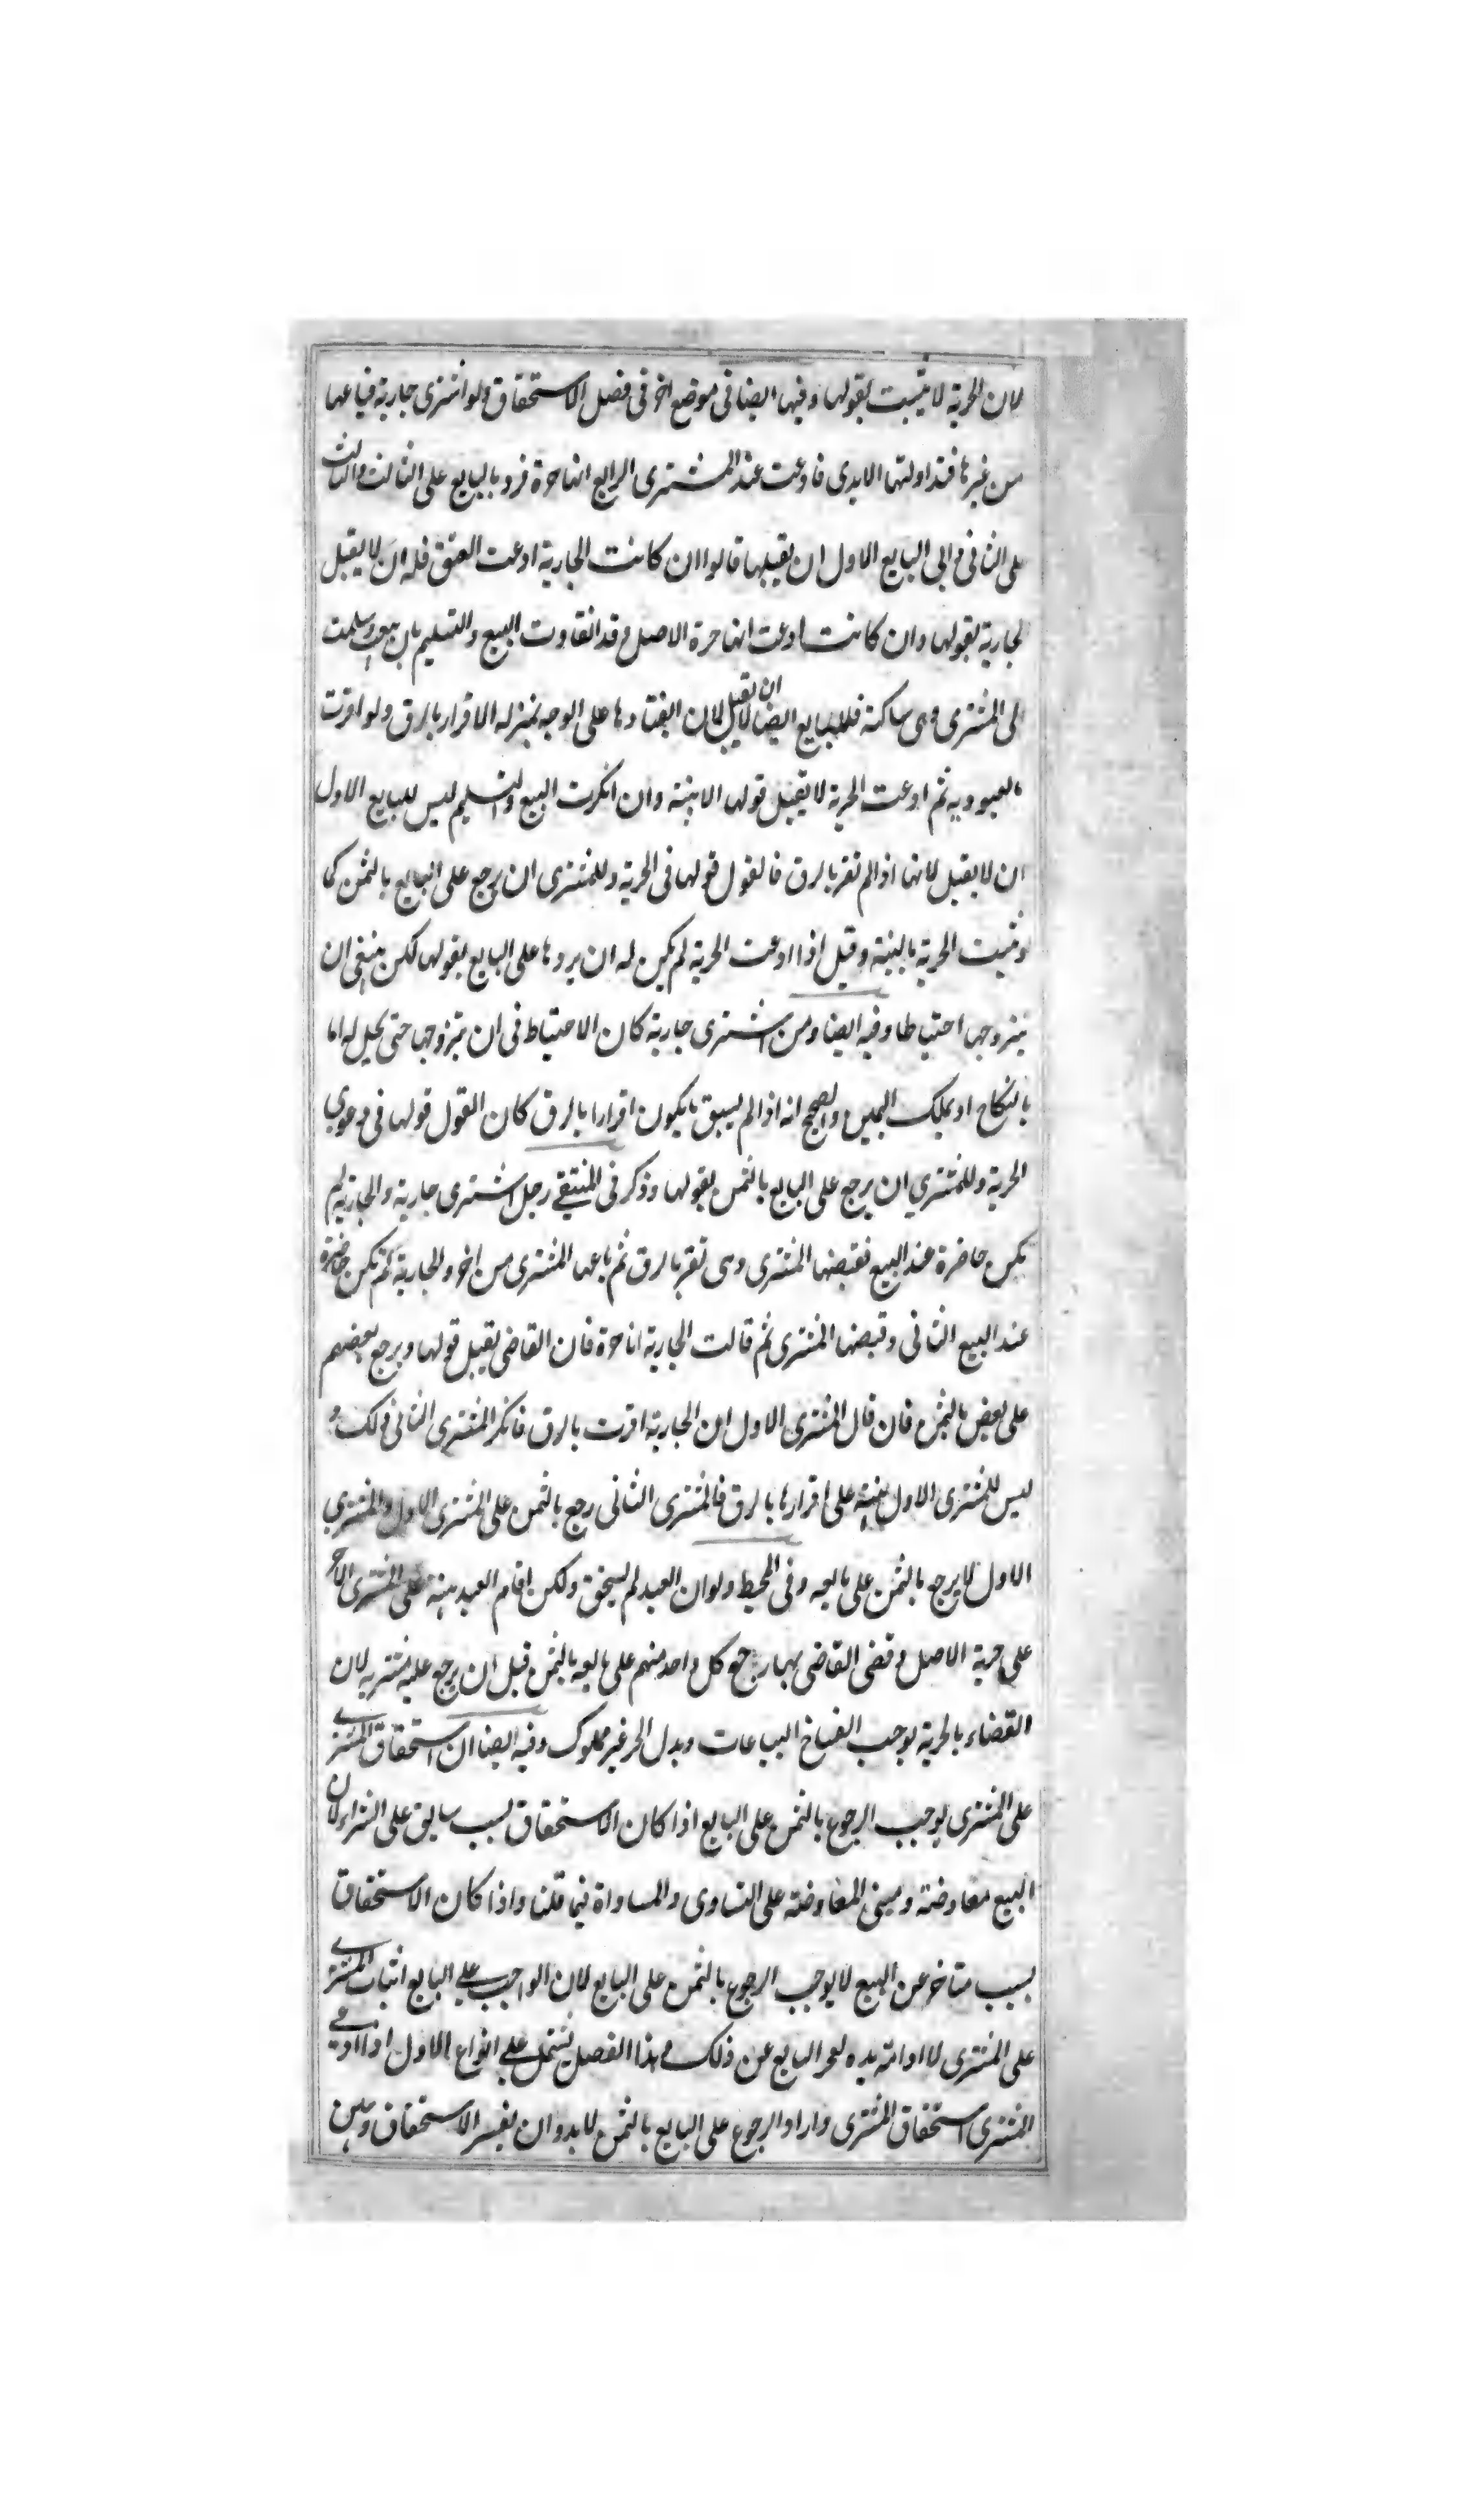 لان الحرية لا يثبت بقولها وفيها ايضا فى موضع اخر فى فصل الاستحقاق ولو اشترى جارية فباعها
من غيرها فتداولتها الايدى فادعت عند المشترى الرابع انها حرة فرد البايع على الثالث والثالث
على الثانى وابى البايع الاول ان يقبلها قالوا ان كانت الجارية ادعت العتق فله ان لا يقبل
لجارية بقولها وان كانت ادعت انها حرة الاصل وقد انقادت البيع والتسليم بان بيعت وسلمت
الى المشترى وهى ساكتة فللبايع ايضا ان لا يقبل لان انقيادها على الوجه بمنزلة الاقرار بالرق ولو اقرت
بالعبودية ثم ادعت الحرية لا يقبل قولها الا ببينة وان انكرت البيع والتسليم ليس للبايع الاول
ان لا يقبل لانها اذا لم تقر بالرق فالقول قولها فى الحرية وللمشترى ان يرجع على البايع بالثمن كما
لو ثبت الحرية بالبينة وقيل اذا ادعت الحرية لم يكن له ان يردها على البايع بقولها لكن ينبغى ان
يتزوجها احتياطا وفيه ايضا ومن اشترى جارية كان الاحتياط فى ان يتزوجها حتى يحل له اما
بالنكاح او بملك اليمين والصحيح انه اذا لم يسبق ما يكون اقرارا بالرق كان القول قولها فى دعوى
الحرية وللمشترى ان يرجع على البايع بالثمن بقولها وذكر فى المنتقى رجل اشترى جارية والجارية لم
يكن حاضرة عند البيع فقبضها المشترى وهى تقر بالرق ثم باعها المشترى من اخر والجارية لم تكن حاضرة
عند البيع الثانى وقبضها المشترى ثم قالت الجارية انا حرة فان القاضى يقبل قولها ويرجع بعضهم
على بعض بالثمن فان قال المشترى الاول ان الجارية اقرت بالرق فانكر المشترى الثانى ذلك و
ليس للمشترى الاول بينة على اقرارها بالرق فالمشترى الثانى رجع بالثمن على المشترى الاول والمشترى
الاول لا يرجع بالثمن على بايعه وفى المحيط ولو ان العبد لم يستحق ولكن اقام العبد بينة على المشترى الاخر
على حرية الاصل وقضى القاضى بها رجع كل واحد منهم على بايعه بالثمن قبل ان يرجع عليه مشتريه لان
القضاء بالحرية يوجب انفساخ البياعات وبدل الحر غير مملوك وفيه ايضا ان استحقاق المشترى
على المشترى يوجب الرجوع بالثمن على البايع اذا كان الاستحقاق بسبب سابق على الشراء لان
البيع معاوضة ومبنى المعاوضة على التساوى والمساواة فيما قلنا واذا كان الاستحقاق
بسبب متاخر عن البيع لا يوجب الرجوع بالثمن على البايع لان الواجب على البايع اثبات المشترى
على المشترى لا ادامة يده لعجز البايع عن ذلك وهذا الفصل يشتمل على انواع الاول اذا ادعى
المشترى استحقاق المشترى واراد الرجوع على البايع بالثمن لا بد وان يفسر الاستحقاق ويبين